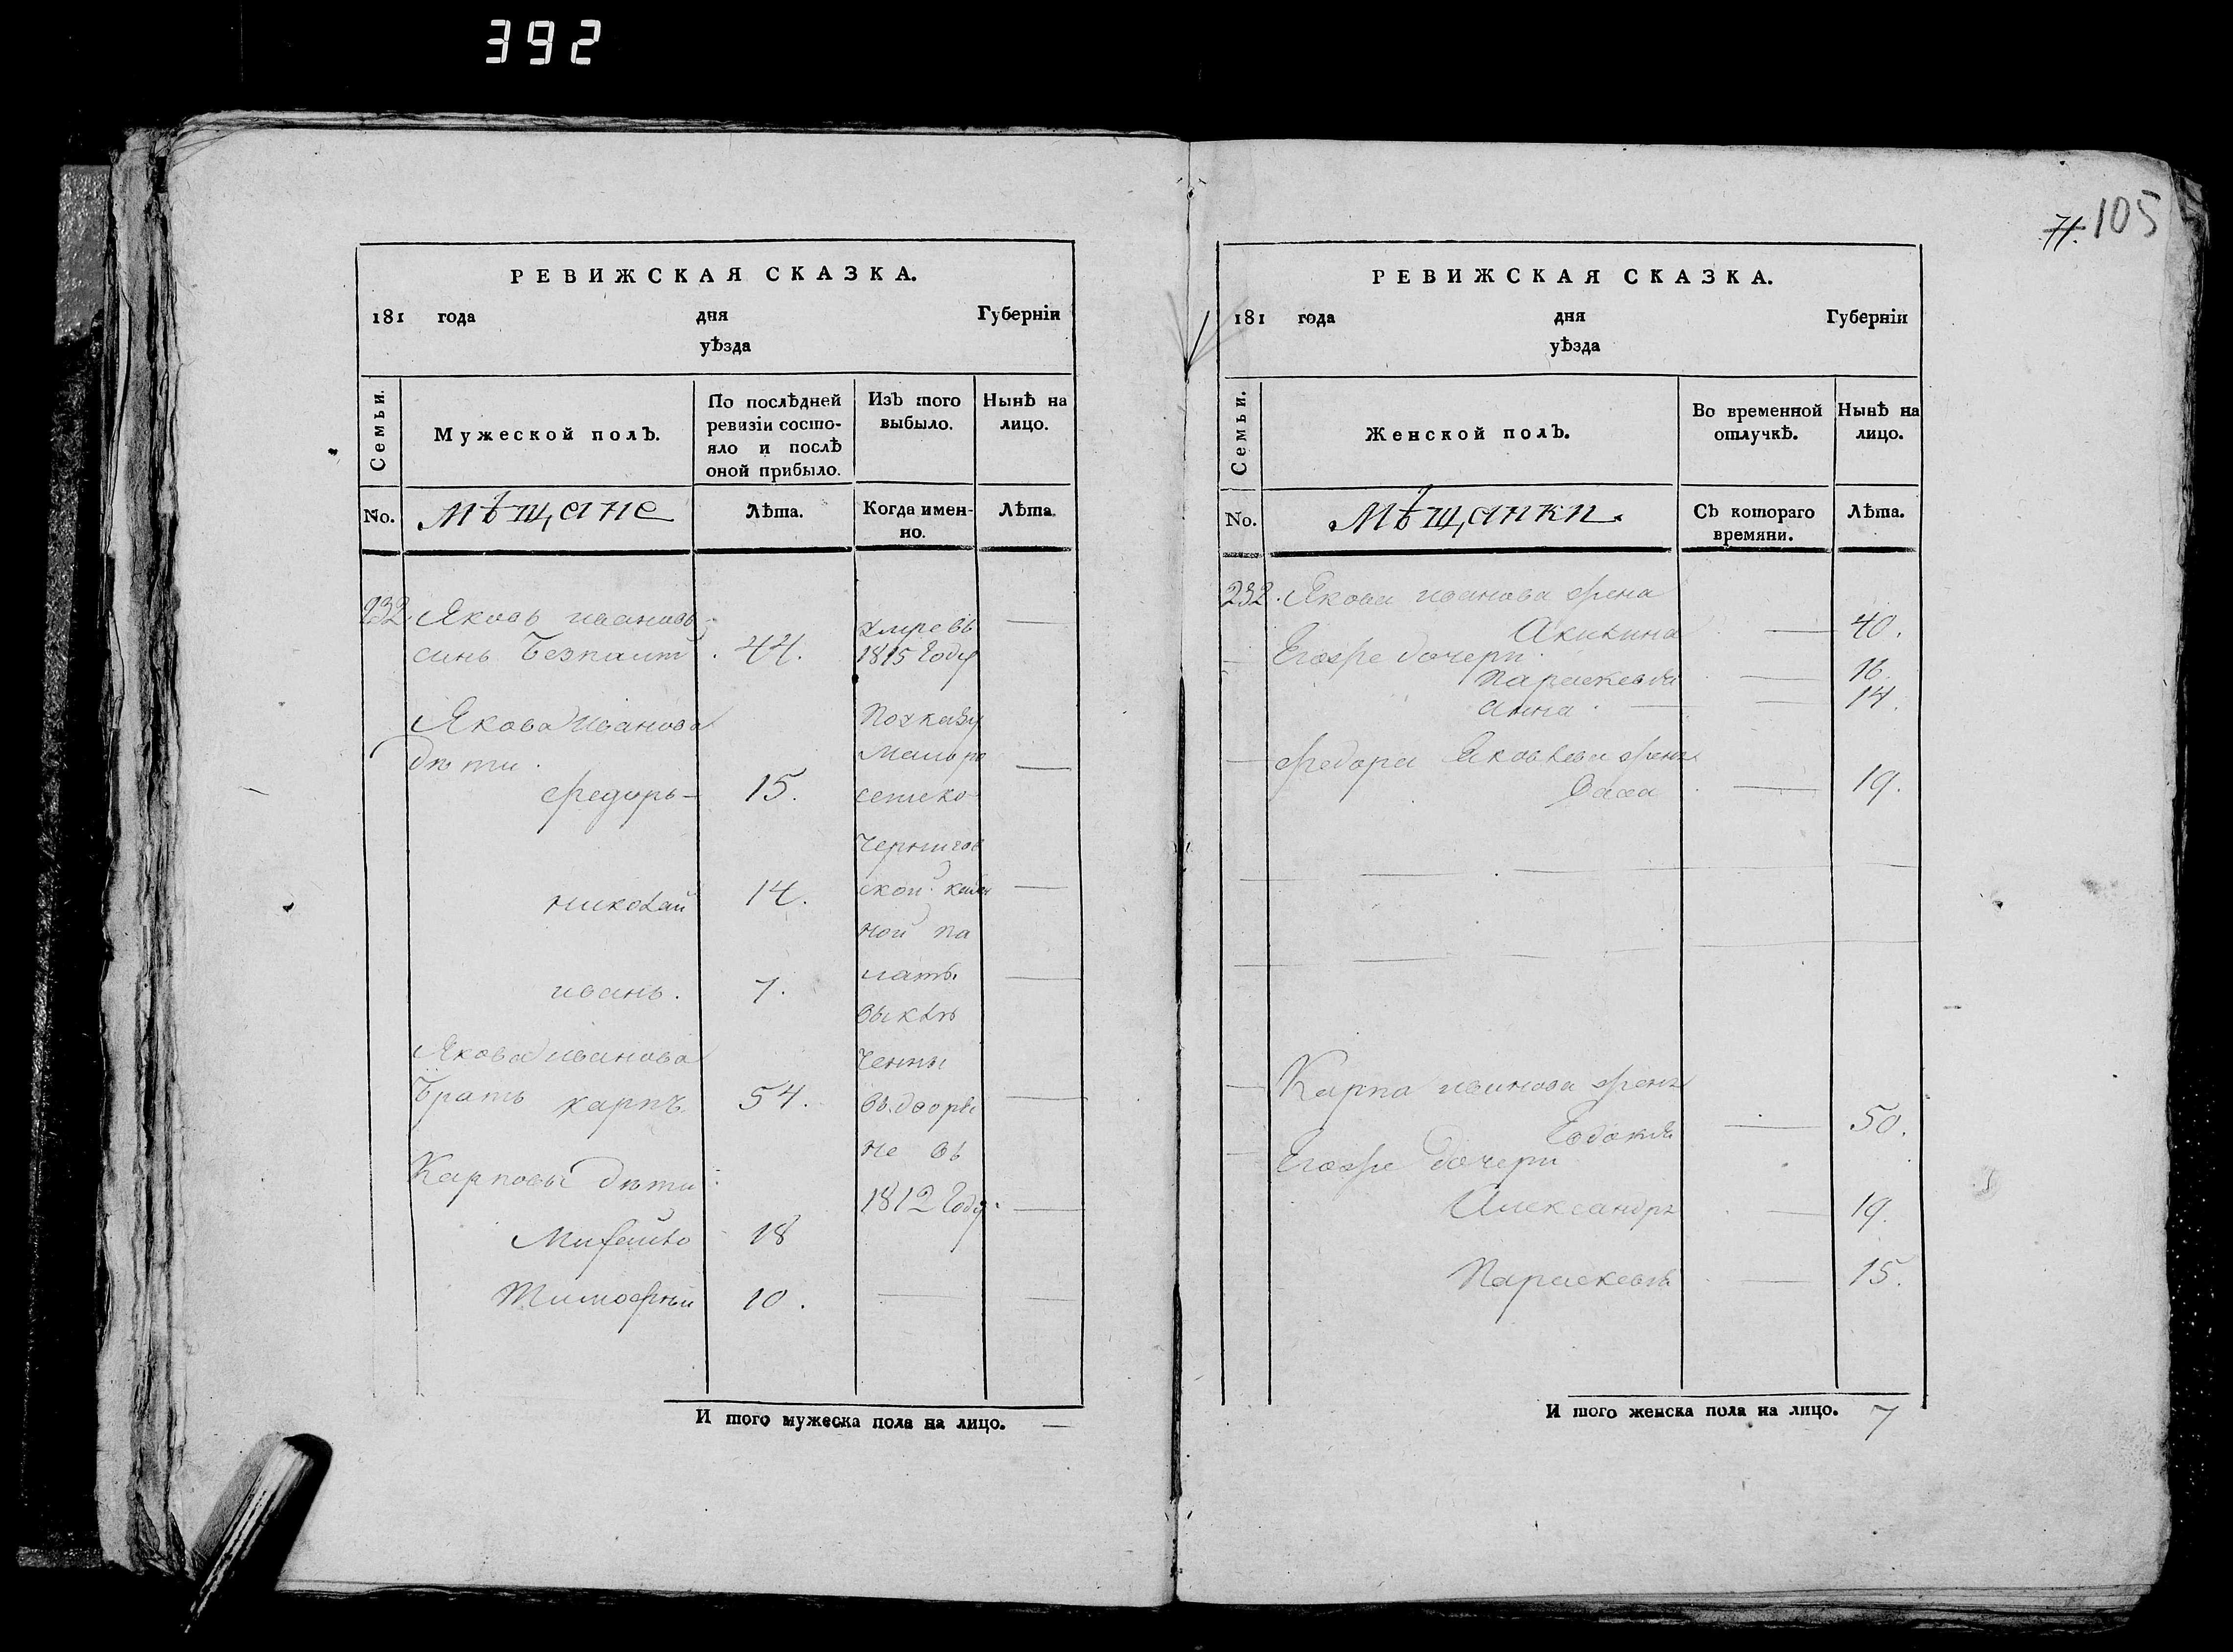 392
РЕВИЖСКАЯ СКАЗКА.
181 года дня Губернїи
уѣзда
Семьи.
Мужеской полъ.
По послѣдней ревизїи состояло и послѣ оной прибыло.
Изъ того выбыло.
Нынѣ на лицо.
No.
Мѣщане
Лѣта.
Когда именно.
Лѣта
232. Яковъ ивановъ
синъ Безпалт 44. умре въ 1815 Году —
Якова Иванова
дѣти.
Федоръ — 15. —
николай 14. —
иванъ. 7. —
Якова иванова
Братъ карпъ 54. —
Карповы дѣти:
Михайло 18 —
Тимофей 10. — —
По указу
Мало ро
сейско
Чернигов
ской казен
ной па
латы
выклю
ченны
въ дворя
не въ
1812 Году.
И того мужеска пола на лицо. —
71. 105
РЕВИЖСКАЯ СКАЗКА.
181 года дня Губернїи
уѣзда
Семьи.
Женской полъ.
Во временной отлучкѣ.
Нынѣ на лицо.
No.
Мѣщанки.
Съ котораго времяни.
Лѣта.
232. Якова иванова жена
Акилина — 40.
Егоже дочери
Параскевія — 16.
Анна — 14.
Федора Яковлева жена
— 19.
Карпа иванова жена
Евдокия — 50.
Егоже дочери
Александра — 19.
Параскевія — 15.
И того женска пола на лицо. 7